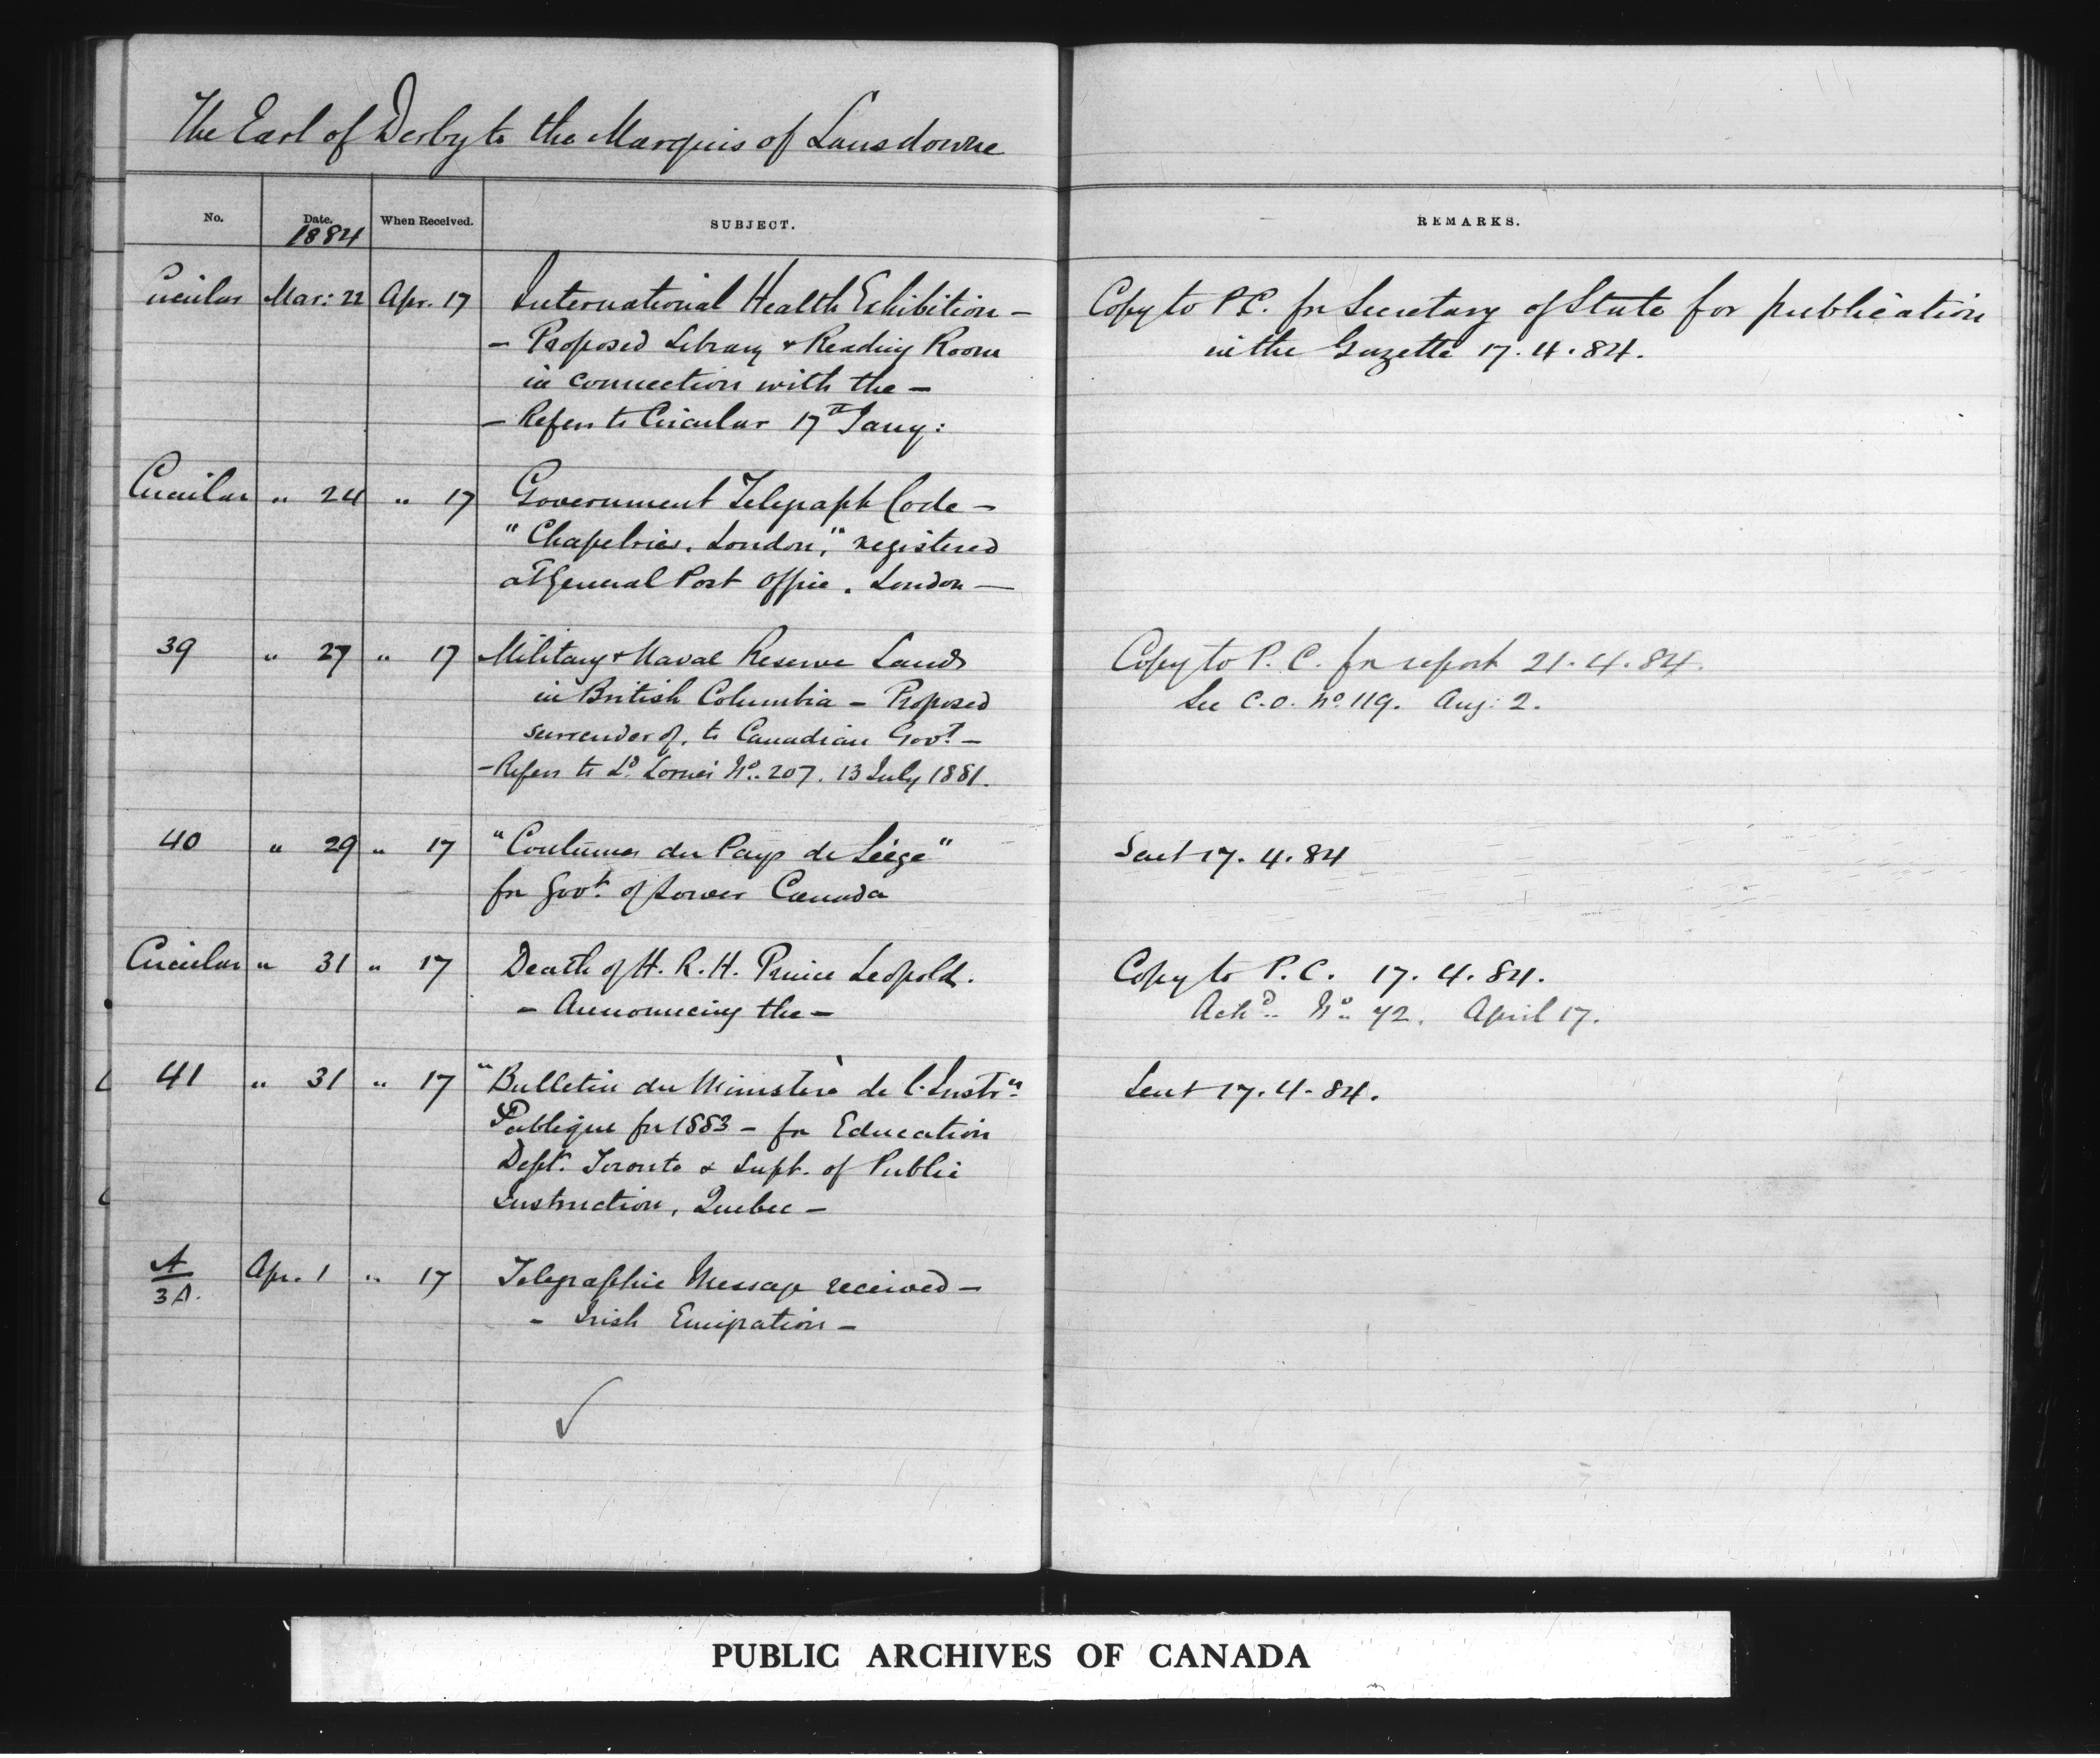 The Earl of Derby to the Marquis of Lansdowne
No. Date. When Received. SUBJECT. REMARKS.
1884
Circular Mar: 22 Apr. 17 International Health Exhibition — Copy to P.C. for Secretary of State for publication
— Proposed Library & Reading Room in the Gazette 17.4.84.
in connection with the —
— Refers to Circular 17th Jany:
Circular " 24 " 17 Government Telegraph Code —
" London," registered
at General Post Office. London —
39 " 27 " 17 Military & Naval Reserve Lands Copy to P.C. for report 21.4.84.
in British Columbia — Proposed See C.O. No. 119. Aug: 2.
surrender of, to Canadian Govt. —
— Refers to Ld. Lorne's No. 207. 13 July 1881.
40 " 29 " 17 "Coutumes du Pays de Liége" Sent 17.4.84
for Govt. of Lower Canada
Circular " 31 " 17 Death of H.R.H. Prince Leopold. Copy to P.C. 17.4.84.
— Announcing the — Ackd. No. 72. April 17.
41 " 31 " 17 "Bulletin du Ministère de l'Instrn. Sent 17.4.84.
Publique for 1883 — for Education
Dept. Toronto & Supt. of Public
Instruction, Quebec —
A Apr. 1 " 17 Telegraphic Message received —
3A.
— Irish Emigration —
PUBLIC ARCHIVES OF CANADA